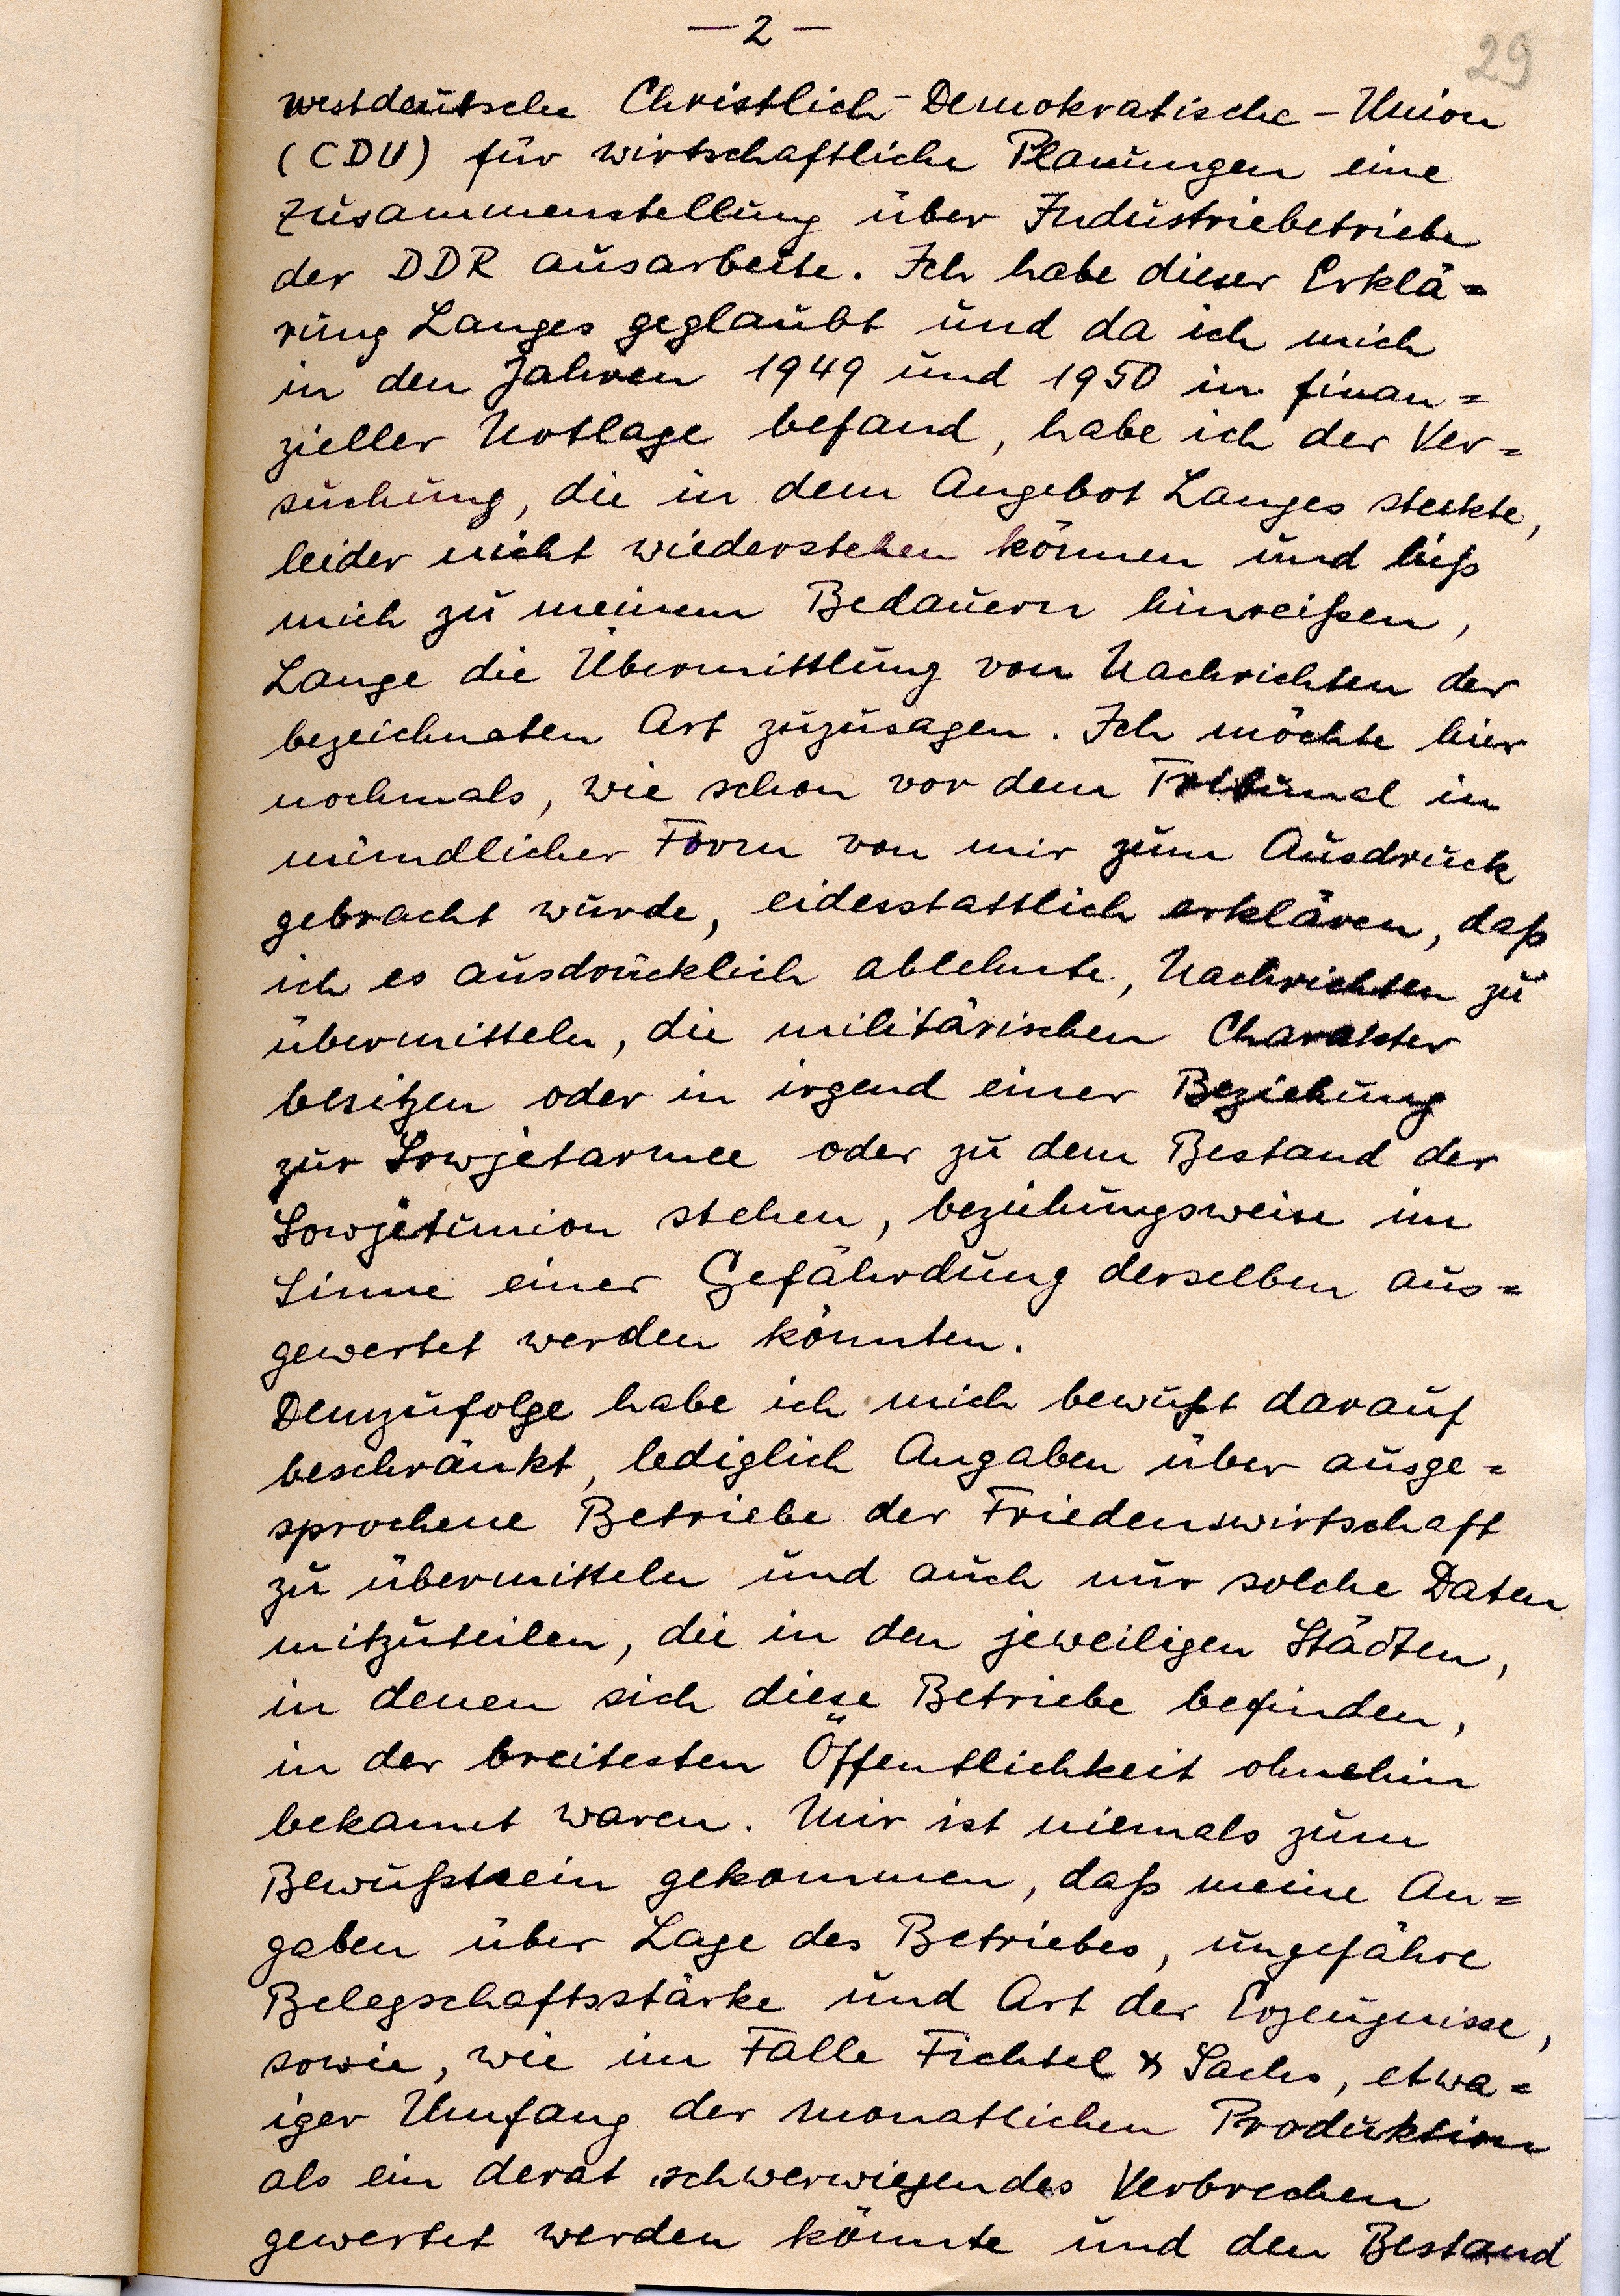 — 2 —
29
westdeutsche Christlich-Demokratische-Union
(CDU) für wirtschaftliche Planungen eine
Zusammenstellung über Industriebetriebe
der DDR ausarbeite. Ich habe dieser Erklä=
rung Langes geglaubt und da ich mich
in den Jahren 1949 und 1950 in finan=
zieller Notlage befand, habe ich der Ver=
suchung, die in dem Angebot Langes steckte,
leider nicht wiederstehen können und ließ
mich zu meinem Bedauern hinreißen,
Lange die Übermittlung von Nachrichten der
bezeichneten Art zuzusagen. Ich möchte hier
nochmals, wie schon vor dem Tribunal in
mündlicher Form von mir zum Ausdruck
gebracht wurde, eidesstattlich erklären, daß
ich es ausdrücklich ablehnte, Nachrichten zu
übermitteln, die militärischen Charakter
besitzen oder in irgend einer Beziehung
zur Sowjetarmee oder zu dem Bestand der
Sowjetunion stehen, beziehungsweise im
Sinne einer Gefährdung derselben aus=
gewertet werden könnten.
Demzufolge habe ich mich bewußt darauf
beschränkt, lediglich Angaben über ausge=
sprochene Betriebe der Friedenswirtschaft
zu übermitteln und auch nur solche Daten
mitzuteilen, die in den jeweiligen Städten,
in denen sich diese Betriebe befinden,
in der breitesten Öffentlichkeit ohnehin
bekannt waren. Mir ist niemals zum
Bewußtsein gekommen, daß meine An=
gaben über Lage des Betriebes, ungefähre
Belegschaftsstärke und Art der Erzeugnisse,
sowie, wie im Falle Fichtel & Sachs, etwa=
iger Umfang der monatlichen Produktion
als ein derat schwerwiegendes Verbrechen
gewertet werden könnte und den Bestand